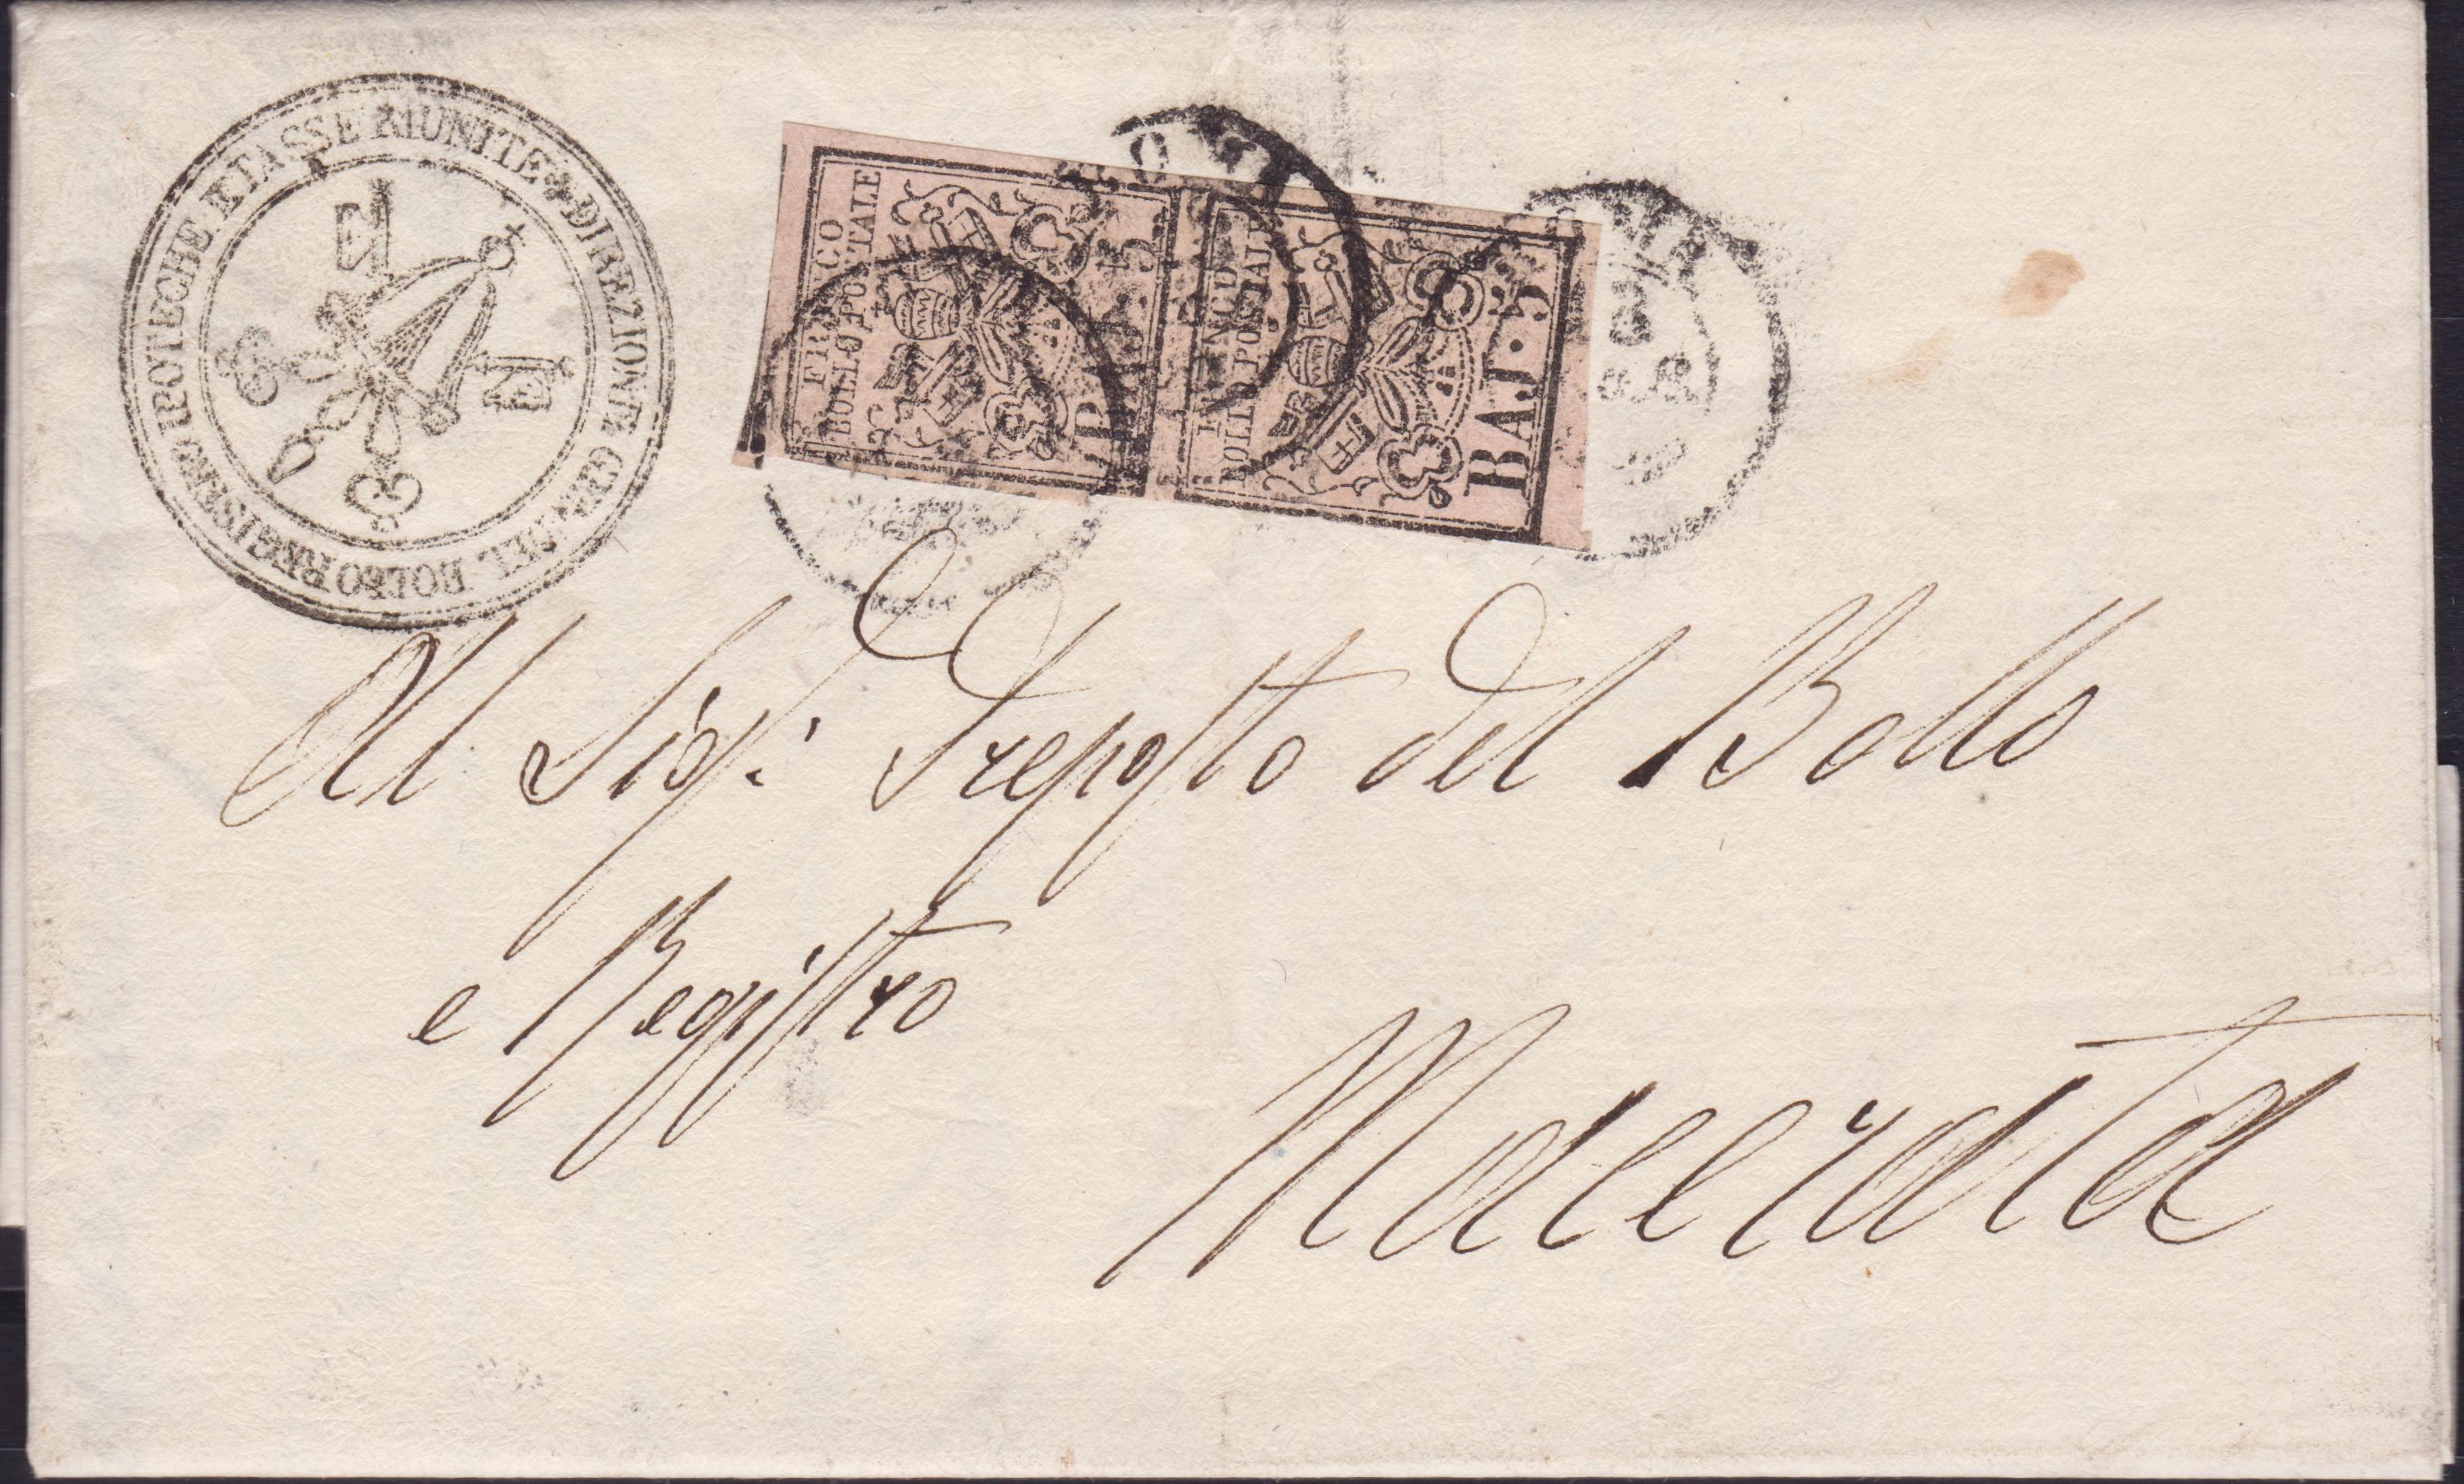 DIREZIONE GEN. DEL BOLLO REGISTRO IPOTECHE E TASSE RIUNITE
FRANCO
BOLLO POSTALE
BAJ. 5
FRANCO
BOLLO POSTALE
BAJ. 5
ROMA
Al Sigr. Preposto del Bollo
e Registro
Macerata